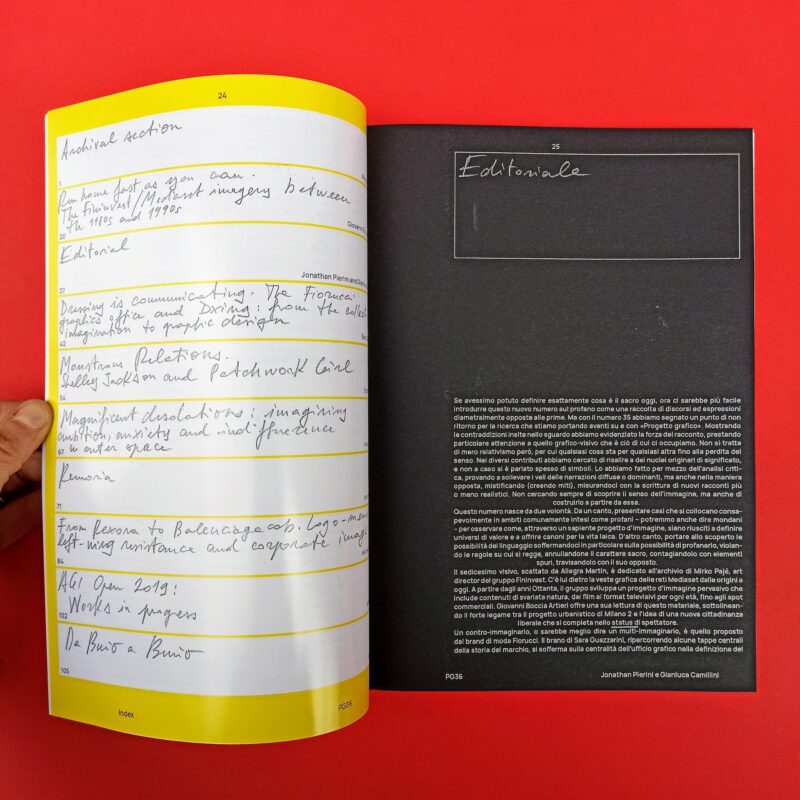 24
Archival section
1
Run home fast as you can.
The Fininvest/Mediaset imagery between
the 1980s and 1990s
20
Giovanni
Editorial
37
Jonathan Pierini and
Dressing is communicating. The Fiorucci
graphics office and Dxing: from the
imagination to graphic design
42
Monstrous Relations.
Shelley Jackson and Patchwork Girl
54
Magnificent desolations: imagining
ambition, anxiety and indifference
in outer space
67
Remoria
71
From Rexona to Balenciaga
left-wing resistance and corporate
84
AGI Open 2019:
Works in progress
102
Da Buio a Buio
105
Index
PG36
25
Editoriale
Se avessimo potuto definire esattamente cosa è il sacro oggi, ora ci sarebbe più facile
introdurre questo nuovo numero sul profano come una raccolta di discorsi ed espressioni
diametralmente opposte alle prime. Ma con il numero 35 abbiamo segnato un punto di non
ritorno per la ricerca che stiamo portando avanti su e con «Progetto grafico». Mostrando
le contraddizioni insite nello sguardo abbiamo evidenziato la forza del racconto, prestando
particolare attenzione a quello grafico-visivo che è ciò di cui ci occupiamo. Non si tratta
di mero relativismo però, per cui qualsiasi cosa sta per qualsiasi altra fino alla perdita del
senso. Nei diversi contributi abbiamo cercato di risalire a dei nuclei originari di significato,
e non a caso si è parlato spesso di simboli. Lo abbiamo fatto per mezzo dell'analisi criti-
ca, provando a sollevare i veli delle narrazioni diffuse o dominanti, ma anche nella maniera
opposta, mistificando (creando miti), misurandoci con la scrittura di nuovi racconti più
o meno realistici. Non cercando sempre di scoprire il senso dell'immagine, ma anche di
costruirlo a partire da essa.
Questo numero nasce da due volontà. Da un canto, presentare casi che si collocano consa-
pevolmente in ambiti comunemente intesi come profani – potremmo anche dire mondani
– per osservare come, attraverso un sapiente progetto d'immagine, siano riusciti a definire
universi di valore e a offrire canoni per la vita laica. D'altro canto, portare allo scoperto le
possibilità del linguaggio soffermandoci in particolare sulla possibilità di profanarlo, violan-
do le regole su cui si regge, annullandone il carattere sacro, contagiandolo con elementi
spuri, travisandolo con il suo opposto.
Il sedicesimo visivo, scattato da Allegra Martin, è dedicato all'archivio di Mirko Pajé, art
director del gruppo Fininvest. C'è lui dietro la veste grafica delle reti Mediaset dalle origini a
oggi. A partire dagli anni Ottanta, il gruppo sviluppa un progetto d'immagine pervasivo che
include contenuti di svariata natura, dai film ai format televisivi per ogni età, fino agli spot
commerciali. Giovanni Boccia Artieri offre una sua lettura di questo materiale, sottolinean-
do il forte legame tra il progetto urbanistico di Milano 2 e l'idea di una nuova cittadinanza
liberale che si completa nello status di spettatore.
Un contro-immaginario, o sarebbe meglio dire un multi-immaginario, è quello proposto
dal brand di moda Fiorucci. Il brano di Sara Guazzarini, ripercorrendo alcune tappe centrali
della storia del marchio, si sofferma sulla centralità dell'ufficio grafico nella definizione del
PG36
Jonathan Pierini e Gianluca Camillini